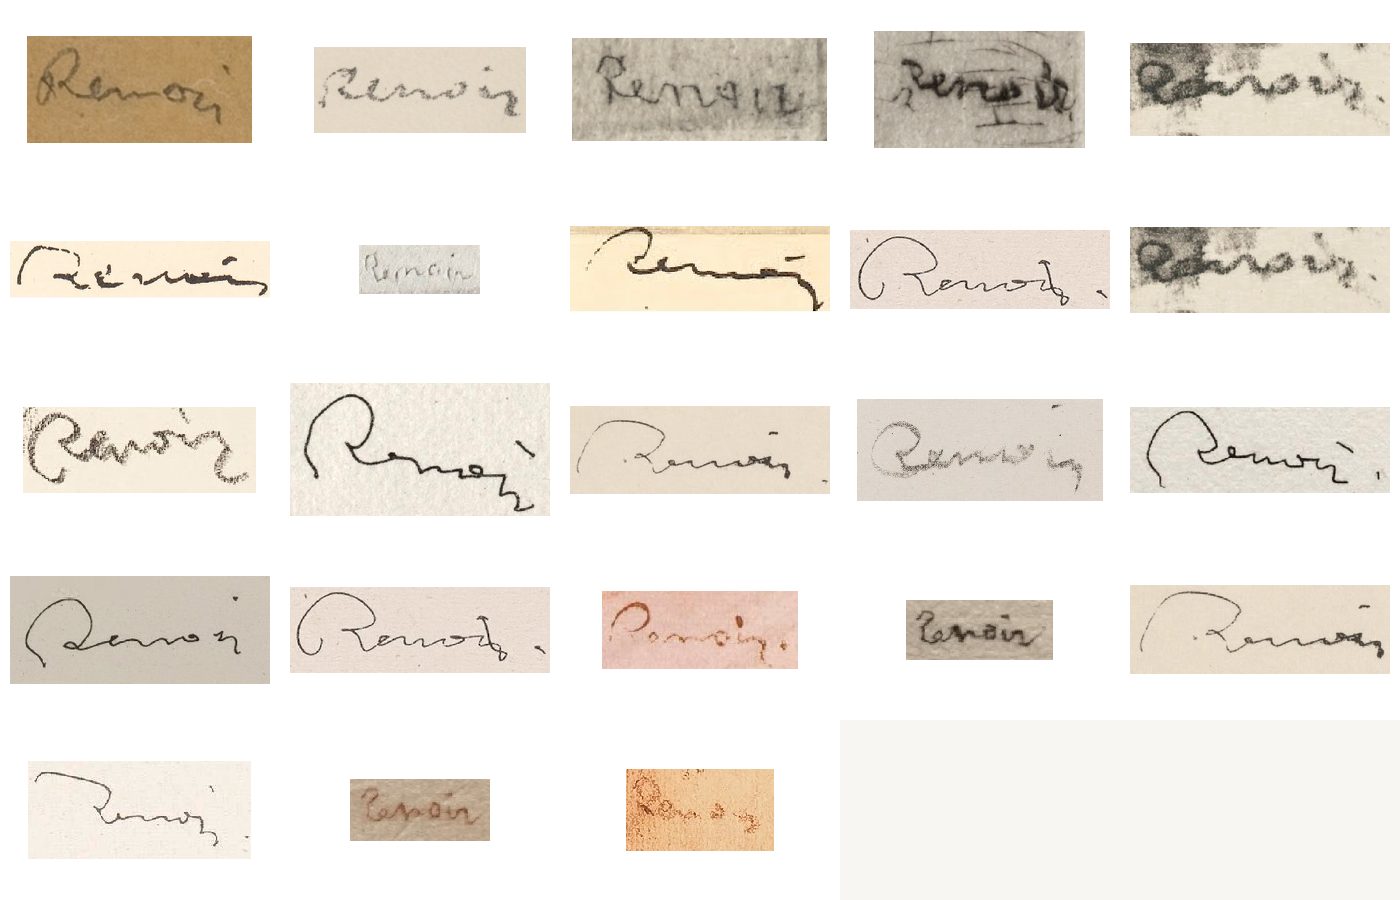 Renoir Renoir Renoir Renoir Renoir.
Renoir Renoir Renoir Renoir. Renoir.
Renoir Renoir Renoir. Renoir Renoir.
Renoir Renoir. Renoir. Renoir Renoir
Renoir. Renoir Renoir